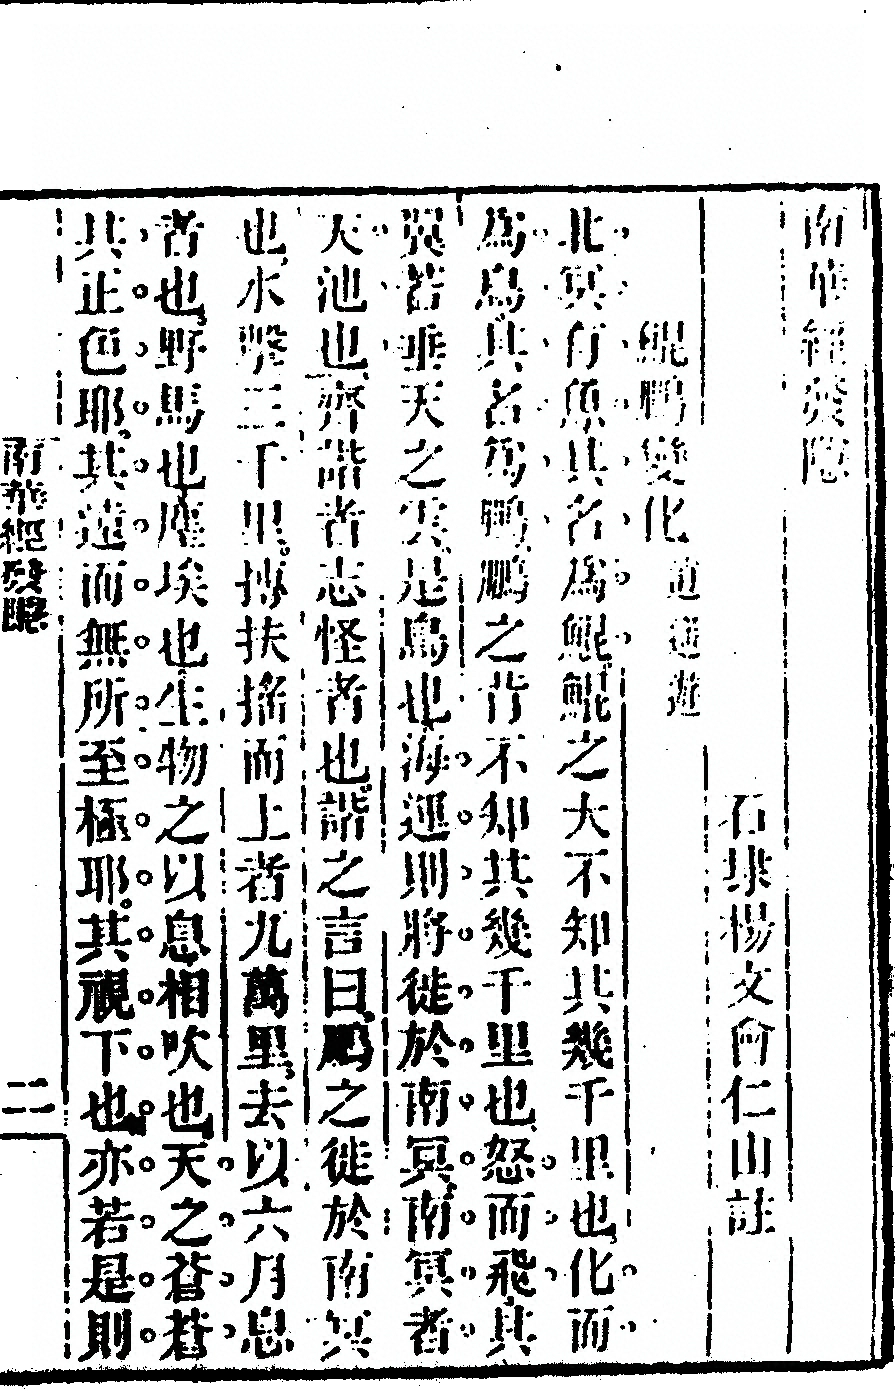 南華經發隱
石埭楊文會仁山註
鯤鵬變化逍遥遊
北冥有魚其名為鯤鯤之大不知其幾千里也化而
為鳥其名為鵬鵬之背不知其幾千里也怒而飛其
翼若垂天之雲是鳥也海運則將徙於南冥南冥者
天池也齊諧者志怪者也諧之言曰鵬之徙於南冥
也水擊三千里搏扶搖而上者九萬里去以六月息
者也野馬也塵埃也生物之以息相吹也天之蒼蒼
其正色耶其遠而無所至極耶其視下也亦若是則
南華經發隱
二